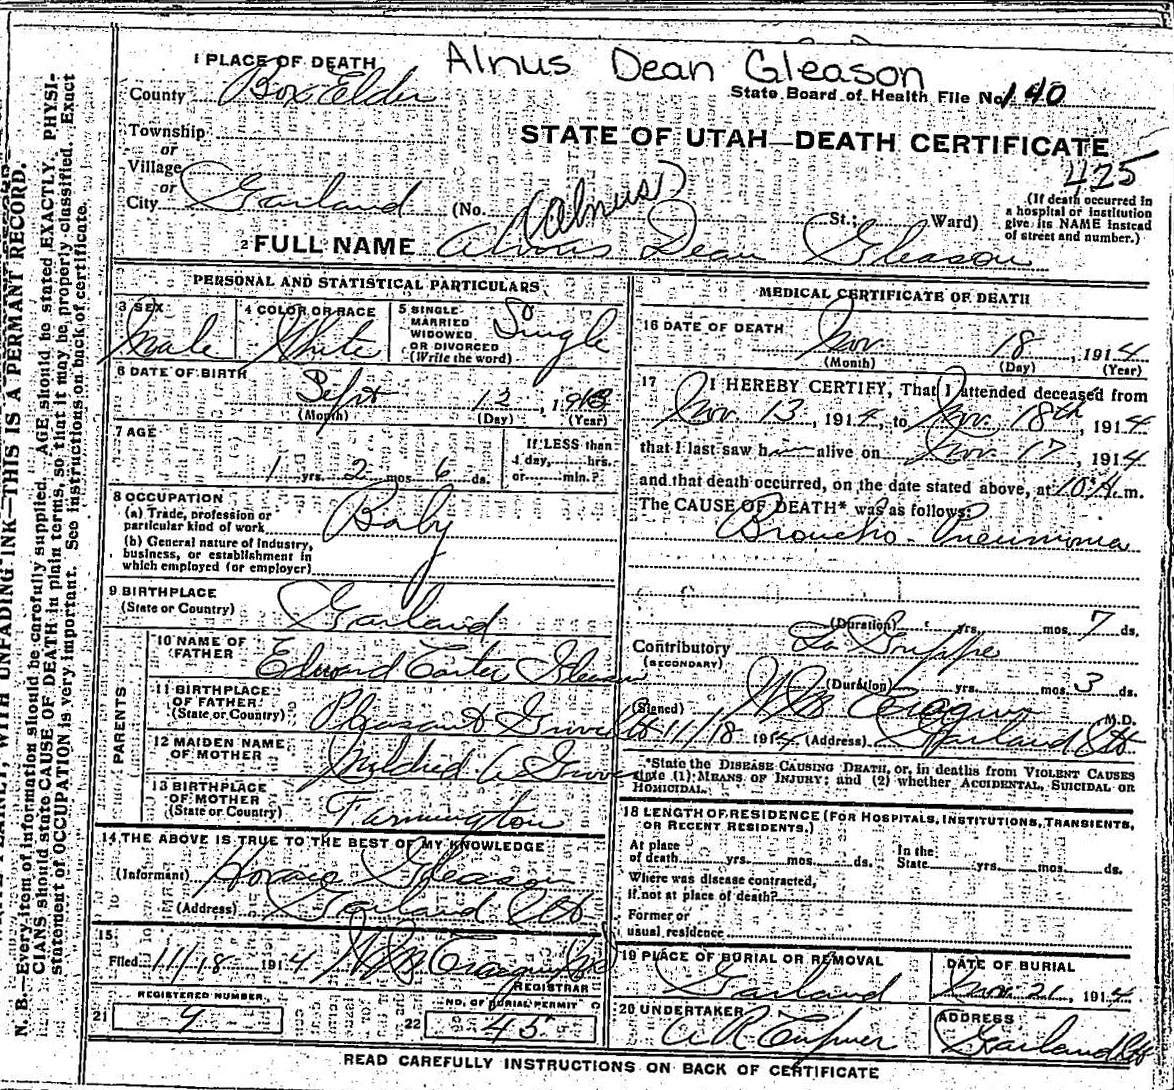 Alnus Dean Gleason
1 PLACE OF DEATH
County Box Elder
State Board of Health File No. 140
Township
or
Village
or
City Garland
STATE OF UTAH—DEATH CERTIFICATE
425
(No. St.; Ward)
(If death occurred in
a hospital or institution
give its NAME instead
of street and number.)
(Alnus)
2 FULL NAME Alnus Dean Gleason
N. B.—Every item of information should be carefully supplied. AGE should be stated EXACTLY. PHYSI-
CIANS should state CAUSE OF DEATH in plain terms, so that it may be properly classified. Exact
statement of OCCUPATION is very important. See instructions on back of certificate.
WITH UNFADING INK—THIS IS A PERMANT RECORD.
PERSONAL AND STATISTICAL PARTICULARS
3 SEX
Male
4 COLOR OR RACE
White
5 SINGLE
MARRIED
WIDOWED
OR DIVORCED
(Write the word)
Single
6 DATE OF BIRTH
Sept 12, 1913
(Month) (Day) (Year)
7 AGE
1 yrs. 2 mos. 6 ds.
If LESS than
1 day, hrs.
or min.?
8 OCCUPATION
(a) Trade, profession or
particular kind of work
Baby
(b) General nature of industry,
business, or establishment in
which employed (or employer)
9 BIRTHPLACE
(State or Country) Garland
PARENTS
10 NAME OF
FATHER
Edward Carter Gleason
11 BIRTHPLACE
OF FATHER
(State or Country)
Pleasant Grove Ut
12 MAIDEN NAME
OF MOTHER
Mildred A
13 BIRTHPLACE
OF MOTHER
(State or Country)
Farmington
14 THE ABOVE IS TRUE TO THE BEST OF MY KNOWLEDGE
(Informant) Horace Gleason
(Address) Garland Ut
15
Filed 11/18 1914
REGISTRAR
REGISTERED NUMBER
21 9
NO. OF BURIAL PERMIT
22 45
MEDICAL CERTIFICATE OF DEATH
16 DATE OF DEATH
Nov. 18, 1914
(Month) (Day) (Year)
17 I HEREBY CERTIFY, That I attended deceased from
Nov. 13, 1914, to Nov. 18th, 1914
that I last saw h alive on Nov. 17, 1914
and that death occurred, on the date stated above, at 10 A. m.
The CAUSE OF DEATH* was as follows:
Broncho-Pneumonia
(Duration) yrs. mos. 7 ds.
Contributory La Grippe
(SECONDARY)
(Duration) yrs. mos. 3 ds.
(Signed) M.D.
11/18 1914 (Address) Garland Ut
*State the DISEASE CAUSING DEATH, or, in deaths from VIOLENT CAUSES
state (1) MEANS OF INJURY; and (2) whether ACCIDENTAL, SUICIDAL or
HOMICIDAL.
18 LENGTH OF RESIDENCE (FOR HOSPITALS, INSTITUTIONS, TRANSIENTS,
OR RECENT RESIDENTS.)
At place
of death yrs. mos. ds.
In the
State yrs. mos. ds.
Where was disease contracted,
if not at place of death?
Former or
usual residence
19 PLACE OF BURIAL OR REMOVAL
Garland
DATE OF BURIAL
Nov. 21, 1914
20 UNDERTAKER
ADDRESS
Garland Ut
READ CAREFULLY INSTRUCTIONS ON BACK OF CERTIFICATE